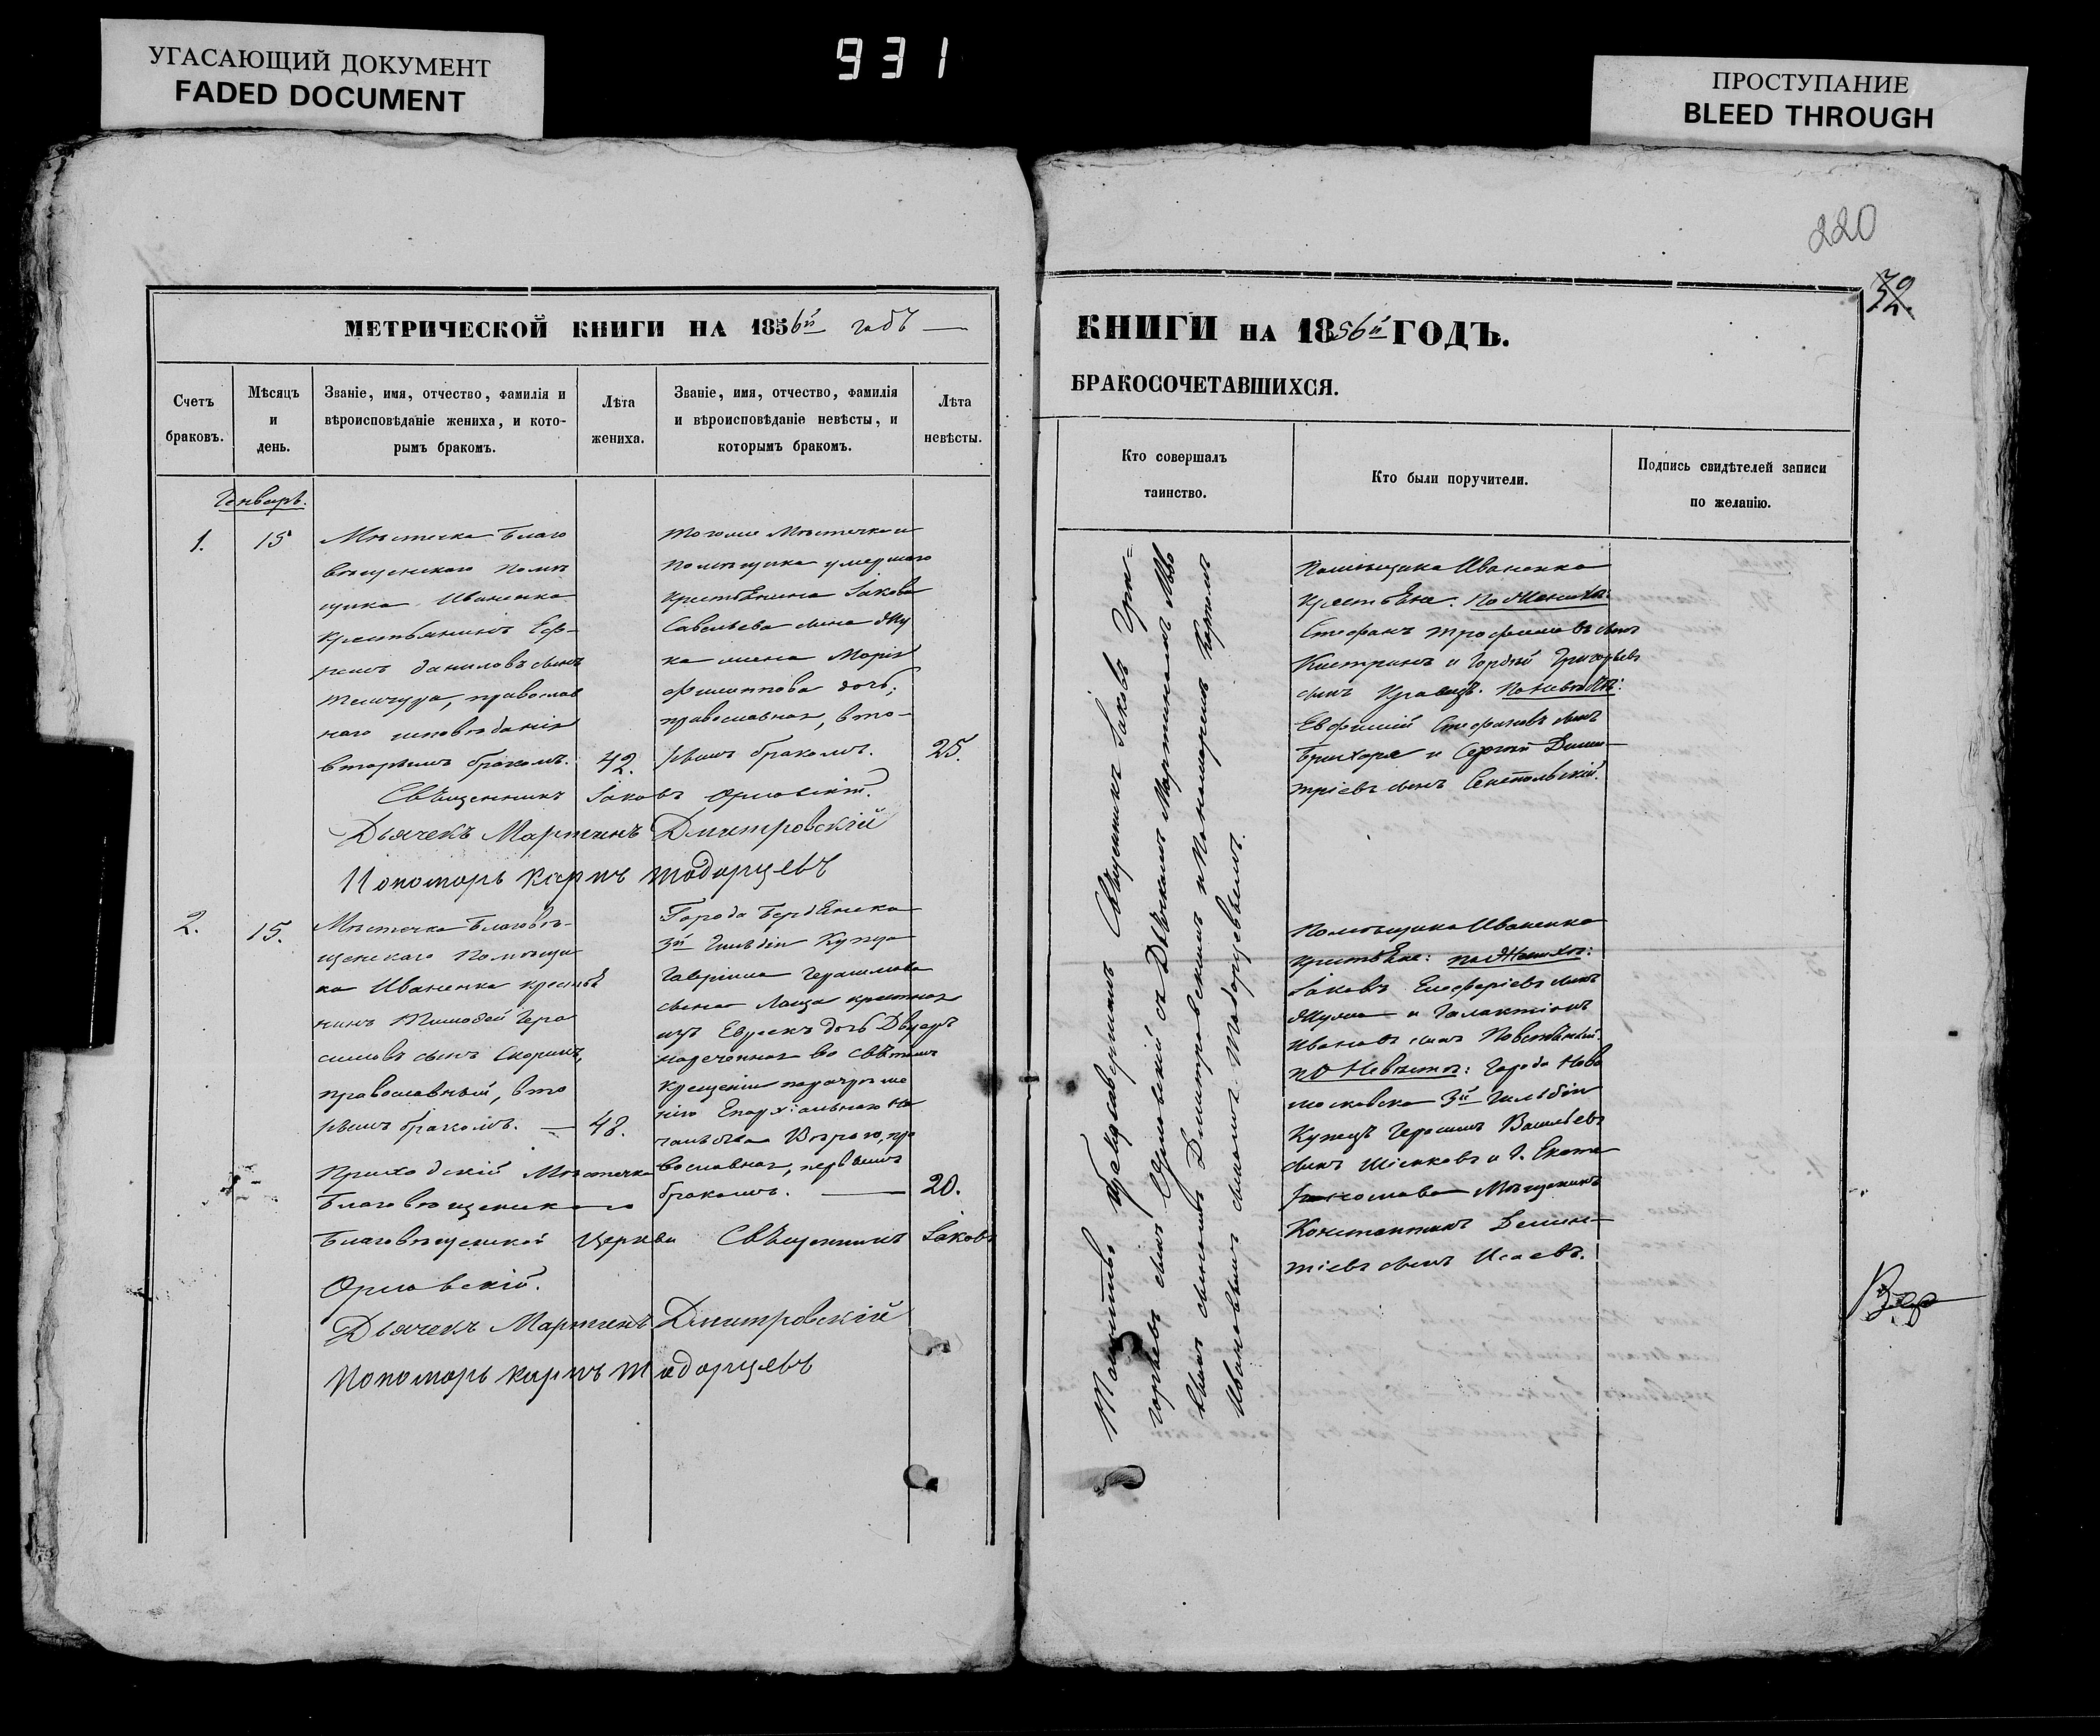 УГАСАЮЩИЙ ДОКУМЕНТ
FADED DOCUMENT
931
ПРОСТУПАНИЕ
BLEED THROUGH
220
МЕТРИЧЕСКОЙ КНИГИ НА 1856й годъ
Счетъ
браковъ.
Мѣсяцъ
и
день.
Званіе, имя, отчество, фамилія и
вѣроисповѣданіе жениха, и кото-
рымъ бракомъ.
Лѣта
жениха.
Званіе, имя, отчество, фамилія
и вѣроисповѣданіе невѣсты, и
которымъ бракомъ.
Лѣта
невѣсты.
Генварь.
1.
15
Мѣстечка Благо
вѣщенскаго помѣ
щика Иваненка
крестьянинъ Еф-
даниловъ сынъ
православ
наго исповѣданія
вторымъ бракомъ.
42.
тогоже Мѣстечка и
помѣщика умершаго
крестьянина Іакова
Савельева сына
жена Марія
Филиппова дочь,
православная, вто-
рымъ бракомъ.
25.
Священникъ Іаковъ Орловскій.
Дьячекъ Мартинъ Дмитровскій
Пономарь Карпъ Тодорцевъ
2.
15.
Мѣстечка Благовѣ-
щенскаго Помѣщи
ка Иваненка крестья
нинъ Тимофей Гера
симовъ сынъ Скорикъ,
православный, вто
рымъ бракомъ. —
48.
Города Бердянска
3й Гильдіи Купца
Гавріила Герасимова
сына крестная
изъ Евреекъ дочь
нареченная во святомъ
крещеніи
нію Епархіальнаго На
чальства пра
вославная, первымъ
бракомъ. —
20.
Приходскій Мѣстечка
Благовѣщенскаго
Благовѣщенской Церкви Священникъ Іаковъ
Орловскій.
Дьячекъ Мартинъ Дмитровскій
Пономарь Карпъ Тодорцевъ
КНИГИ НА 1856й ГОДЪ.
БРАКОСОЧЕТАВШИХСЯ.
Кто совершалъ
таинство.
Кто были поручители.
Подпись свидѣтелей записи
по желанію.
Таинство совершалъ Священникъ Іаковъ Гри=
горьевъ сынъ Орловскій съ Дьячкомъ Мартиномъ
сыномъ Дмитровскимъ и Пономаремъ Карпомъ
Ивановымъ сыномъ Тодорцевымъ.
Помѣщика Иваненка
крестьяне. По Женихѣ:
Стефанъ Трофимовъ сынъ
и Гордѣй Григорьевъ
сынъ Кравецъ. По невѣстѣ:
Евфимій Стефановъ сынъ
и Сергѣй Дими-
тріевъ сынъ
Помѣщика Иваненка
крестьяне: по Женихѣ:
Іаковъ Елеферіевъ сынъ
и Галактіонъ
Ивановъ сынъ
по Невѣстѣ: Города Ново
московска 3й Гильдіи
Купецъ Герасимъ Васильевъ
сынъ и Г. Екате
ринослава Мѣщанинъ
Константинъ Демен-
тіевъ сынъ Исаевъ.